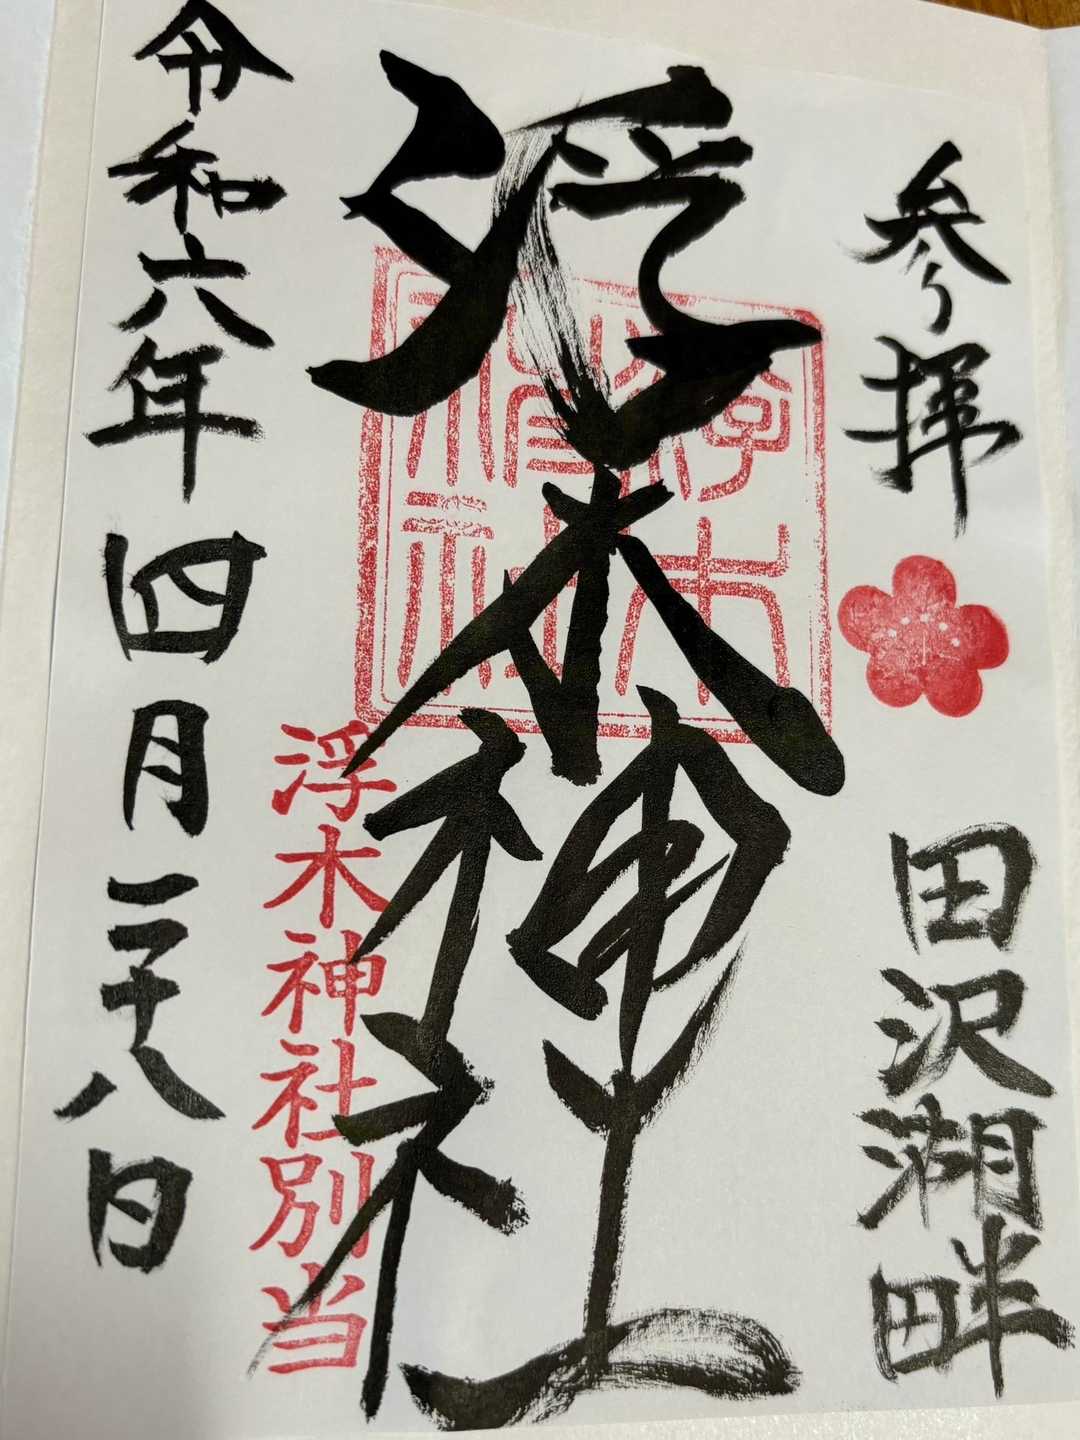 参拝
田沢湖畔
浮木神社
浮木
神社
浮木神社別当
令和六年四月二十八日